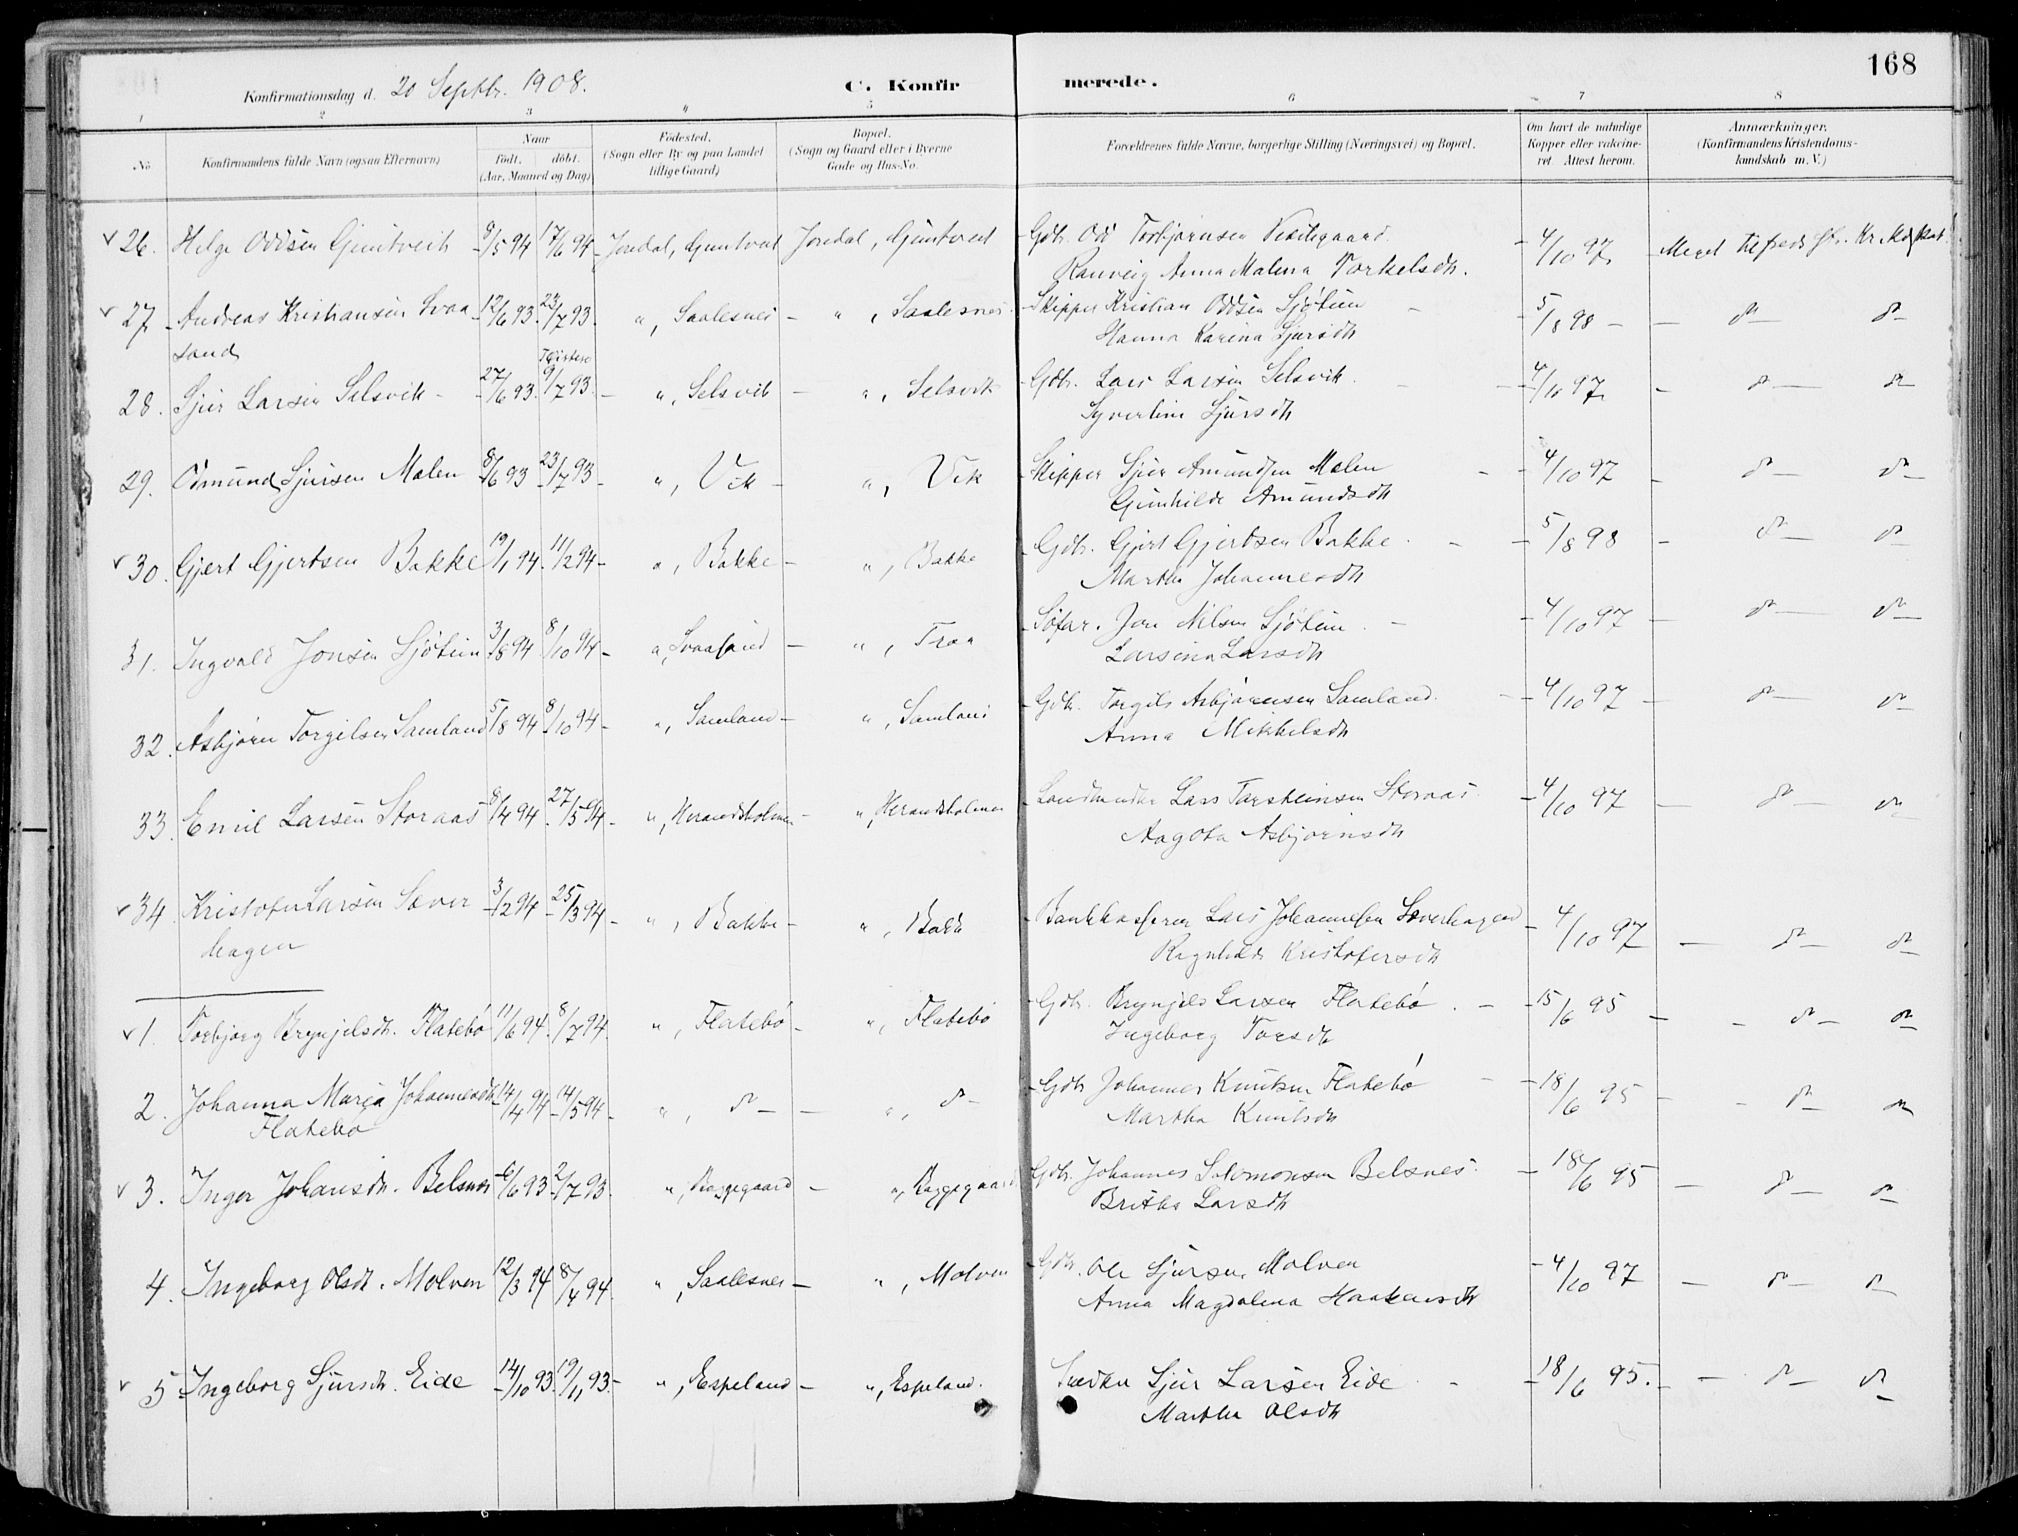 168
Konfirmationsdag d. 20 Septbr. 1908.
C. Konfirmerede.
1 2 3 4 5 6 7 8
No
Konfirmandens fulde Navn (ogsaa Efternavn)
Naar
født. døbt.
(Aar, Maaned og Dag)
Fødested.
(Sogn eller By og paa Landet
tillige Gaard)
Bopæl.
(Sogn og Gaard eller i Byerne
Gade og Hus-No.
Forældrenes fulde Navne, borgerlige Stilling (Næringsvei) og Bopæl.
Om havt de naturlige
Kopper eller vakcine-
ret. Attest herom.
Anmærkninger.
(Konfirmandens Kristendoms-
kundskab m. V.)
26. Helge Oddsen Gjuntveit 9/5 94 17/6 94 Jondal, Gjuntveit Jondal, Gjuntveit Gdbr. Od Torbjørnsen 4/10 97 Meget tilfredsst. Kr.kdskab
Ranveig Anna Malena Torkelsdtr.
27 Andreas Kristiansen Svaa- 12/6 93 23/7 93 ", Saalesnes ", Saalesnes Skipper Kristian Oddsen Sjøtun 5/8 98 do do
sand Hanna Karina Sjursdtr
28. Sjur Larsen Selsvik 27/6 93 9/7 93 ", Selsvik ", Selsvik Gdbr. Lars Larsen Selsvik 4/10 97 do do
Syverline Sjursdtr
29. Odmund Sjursen Malen 8/6 93 23/7 93 ", Vik ", Vik Skipper Sjur Amundsen Malen 4/10 97 do do
Gunhilde Amundsdtr
30. Gjert Gjertsen Bakke 19/1 94 11/2 94 ", Bakke ", Bakke Gdbr. Gjert Gjertsen Bakke 5/8 98 do do
Martha Johannesdtr
31. Ingvald Jonsen Sjøtun 3/8 94 8/10 94 ", Svaasand ", Traa Søfar. Jon Nilsen Sjøtun 4/10 97 do do
Larsina Larsdtr
32. Asbjørn Torgilsen Samland 5/8 94 8/10 94 ", Samland ", Samland Gdbr. Torgils Asbjørnsen Samland 4/10 97 do do
Anna Mikkelsdtr
33. Emil Larsen Storaas 8/4 94 27/5 94 ", Herandsholmen ", Herandsholmen Landhandler Lars Torsteinsen Storaas 4/10 97 do do
Aagota Asbjørnsdtr
34. Kristofer Larsen Sæver 3/2 94 25/3 94 ", Bakke ", Bakke Bankkasserer Lars Johannesen Sæverhagen 4/10 97 do do
hagen Ragnhilde Kristofersdtr
1. Torbjørg Brynjelsdtr. Flatebø 11/6 94 8/7 94 ", Flatebø ", Flatebø Gdbr. Brynjels Larsen Flatebø 15/6 95 do do
Ingeborg Torsdtr
2. Johanna Maria Johannesdtr 14/4 94 14/5 94 ", do ", do Gdbr Johannes Knutsen Flatebø 18/6 95 do do
Flatebø Martha Knutsdtr
3. Inger Johansdtr. Belsnes 6/6 93 2/7 93 ", Kaggegaard ", Kaggegaard Gdbr. Johannes Salomonsen Belsnes 18/6 95 do do
Britha Larsdtr
4. Ingeborg Olsdtr. Molven 12/3 94 8/4 94 ", Saalesnes ", Molven Gdbr. Ole Sjursen Molven 4/10 97 do do
Anna Magdalena Haakensdtr
5 Ingeborg Sjursdtr. Eide 14/10 93 19/11 93 ", Espeland ", Espeland. Snedker Sjur Larsen Eide 18/6 95. do do
Martha Olsdtr